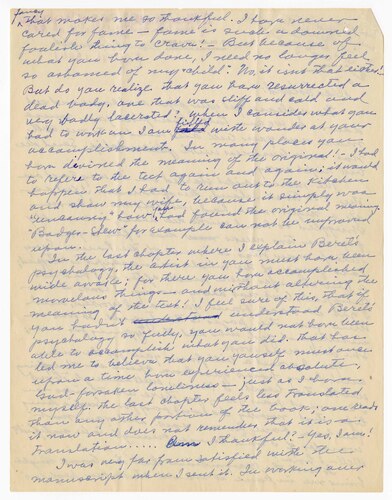 fancy
that makes me so thankful. I have never
cared for fame — fame is such a damned
foolish thing to crave! — But because of
what you have done, I need no longer feel
so ashamed of my "child". No, it isn't that either!
But do you realize that you have resurrected a
dead body, one that was stiff and cold and
very badly lacerated? When I consider what you
had to work on I am filled with wonder at your
accomplishment. In many places you
have divined the meaning of the original! — I had
to refer to the text again and again; it would
happen that I had to run out to the kitchen
and show my wife, because it simply was
"uncanny" how you had found the original meaning
"Badger-Den" for example can not be improved
upon.
In the last chapter where I explain Beret's
psychology, the artist in you must have been
wide awake; for there you have accomplished
marvelous things and without altering the
meaning of the text! I feel sure of this, that if
you hadn't understood Beret's
psychology so fully, you would not have been
able to accomplish what you did. That has
led me to believe that you yourself must once
upon a time have experienced absolute,
God-forsaken loneliness — just as I have
myself. The last chapter feels less translated
than any other portion of the book; one reads
it now and does not remember that it is a
translation.... Am I thankful? — Yes, I am!
I was very far from satisfied with the
manuscript when I sent it. In working over